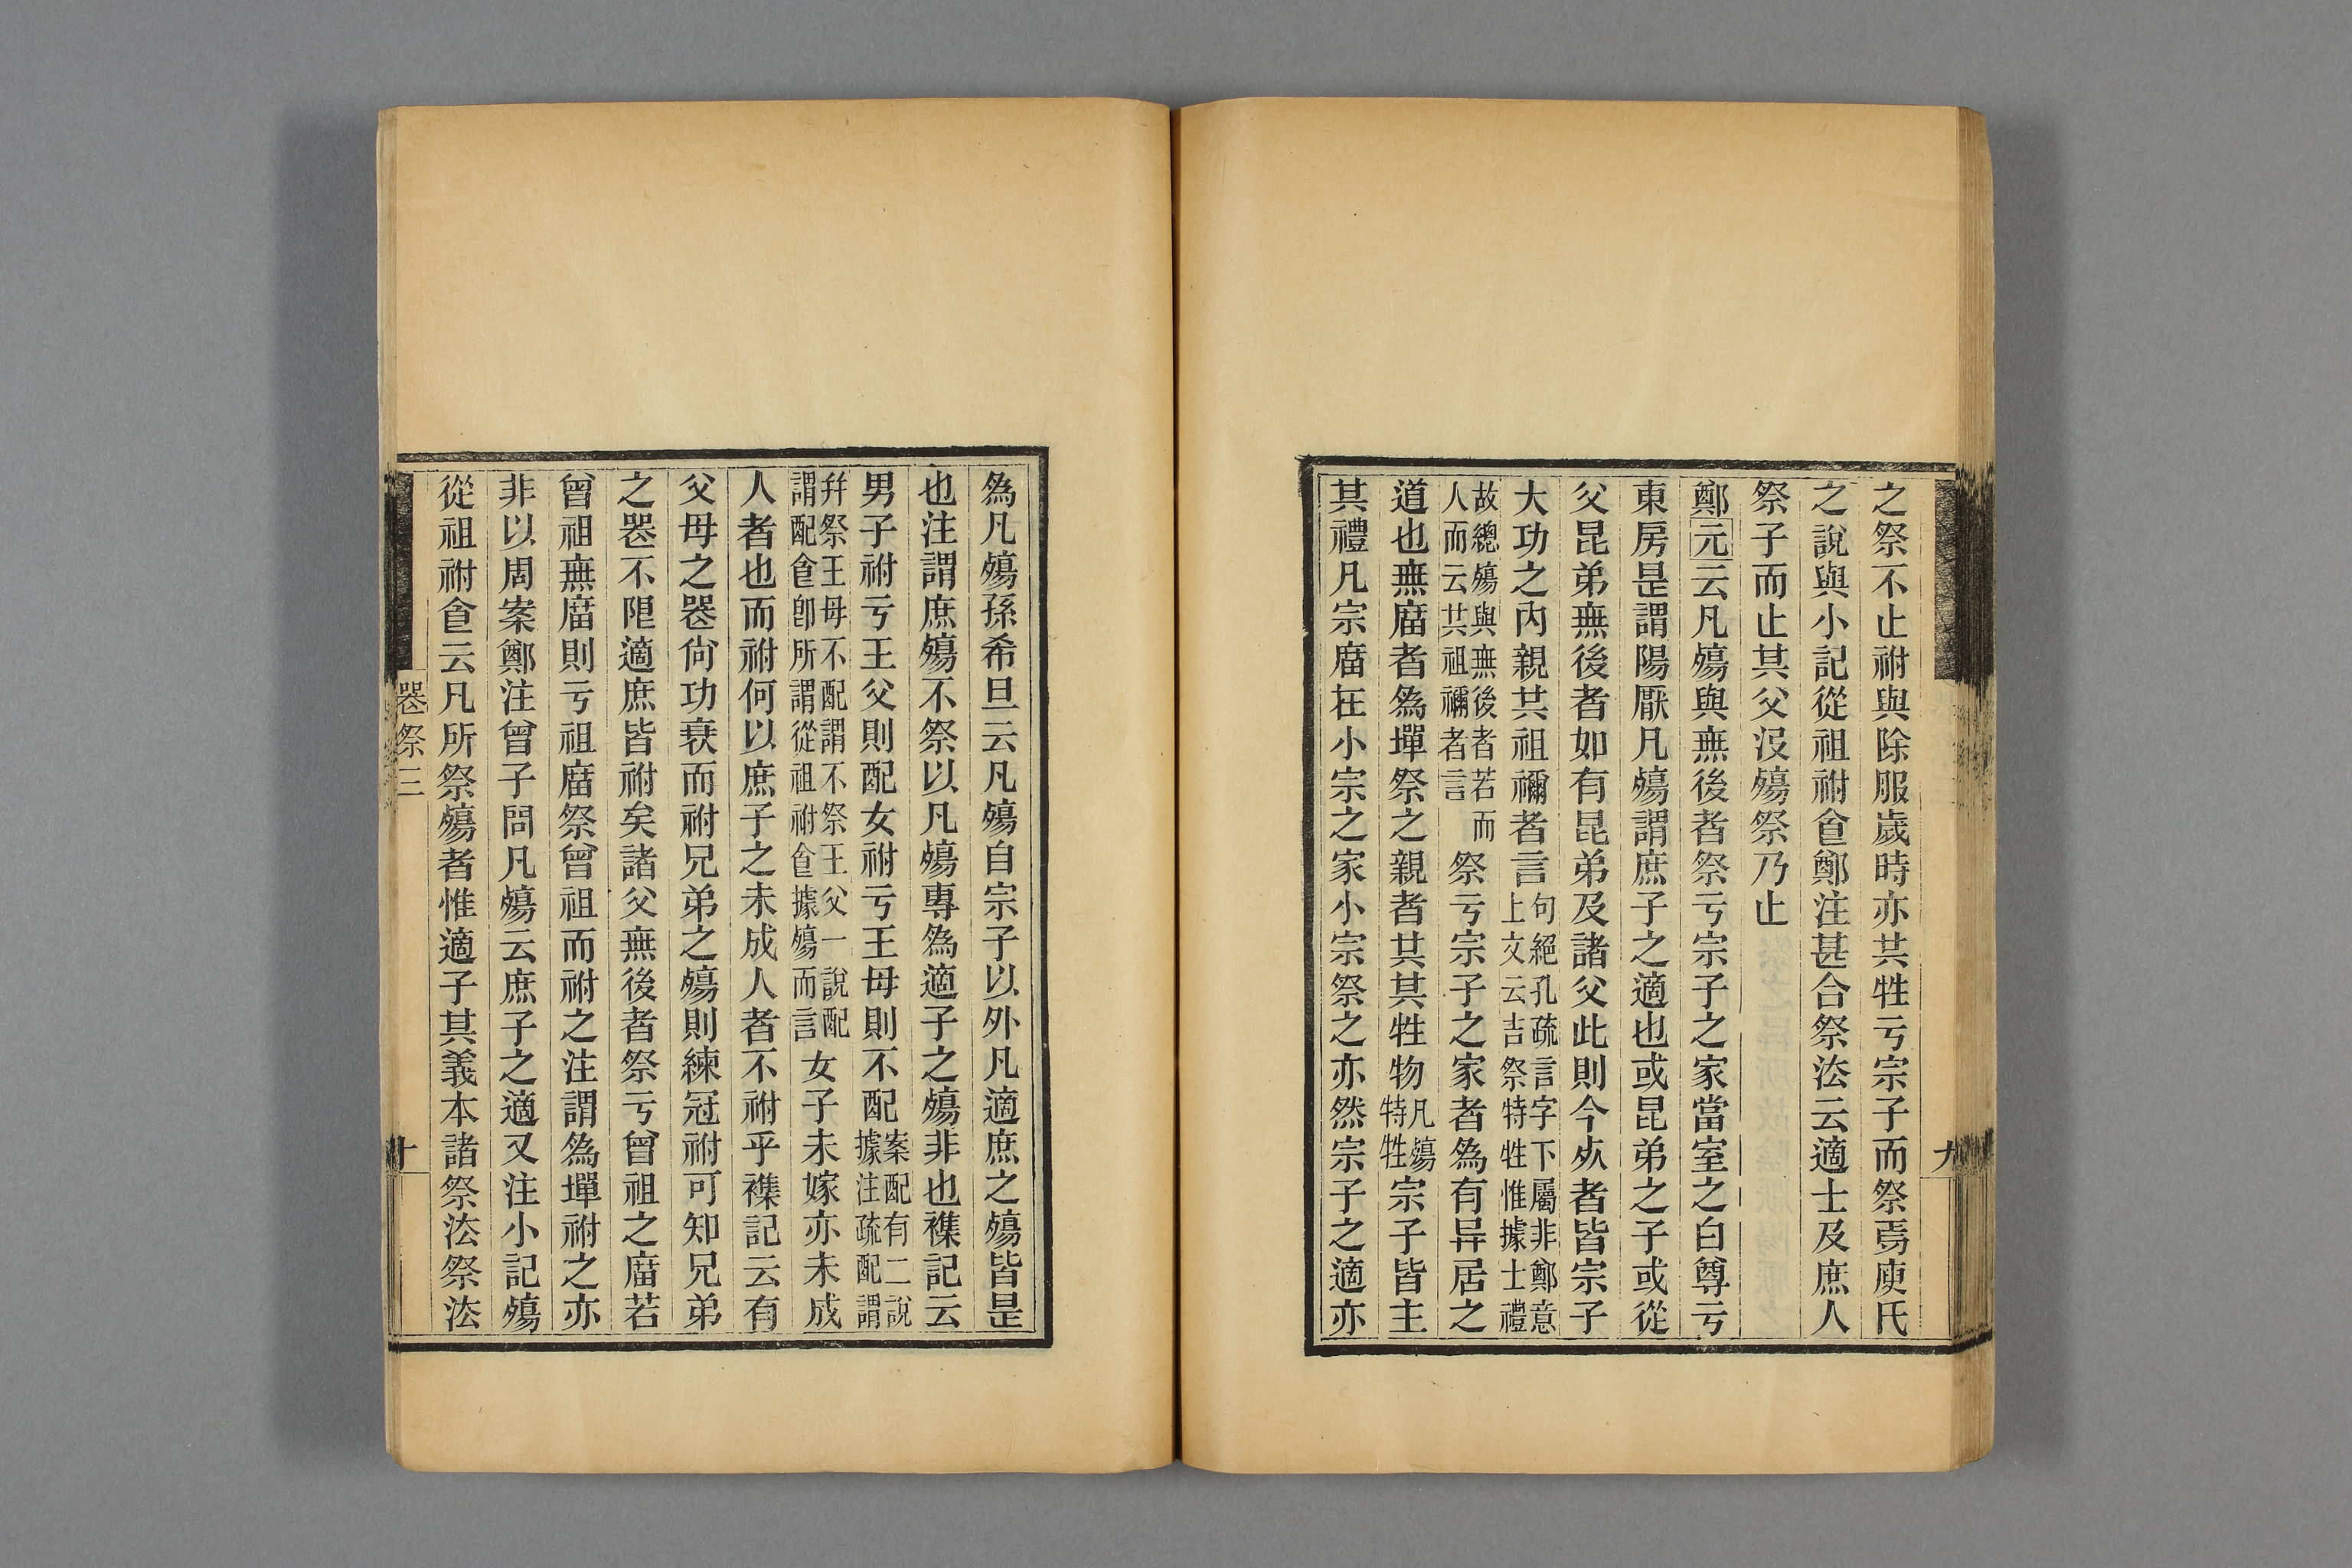 之祭不止祔與除服歲時亦共牲亏宗子而祭焉庾氏
之說與小記從祖祔𠊊鄭注甚合祭法云適士及庶人
祭子而止其父沒殤祭乃止
鄭元云凡殤與無後者祭亏宗子之家當室之白尊亏
東房是謂陽厭凡殤謂庶子之適也或昆弟之子或從
父昆弟無後者如有昆弟及諸父此則今𣦸者皆宗子
大功之內親共祖禰者言句絕孔疏言字下屬非鄭意
上文云吉祭特牲惟據士禮
故總殤與無後者若而
人而云共祖禰者言祭亏宗子之家者為有异居之
道也無庿者為墠祭之親者共其牲物凡殤
特牲宗子皆主
其禮凡宗庿在小宗之家小宗祭之亦然宗子之適亦
九
為凡殤孫希旦云凡殤自宗子以外凡適庶之殤皆是
也注謂庶殤不祭以凡殤專為適子之殤非也襍記云
男子祔亏王父則配女祔亏王母則不配案配有二說
據注疏配謂
幷祭王母不配謂不祭王父一說配
謂配食卽所謂從祖祔食據殤而言女子未嫁亦未成
人者也而祔何以庶子之未成人者不祔乎襍記云有
父母之喪尙功衰而祔兄弟之殤則練冠祔可知兄弟
之喪不限適庶皆祔矣諸父無後者祭亏曾祖之庿若
曾祖無庿則亏祖庿祭曾祖而祔之注謂為墠祔之亦
非以周案鄭注曾子問凡殤云庶子之適又注小記殤
從祖祔食云凡所祭殤者惟適子其義本諸祭法祭法
喪祭三
十